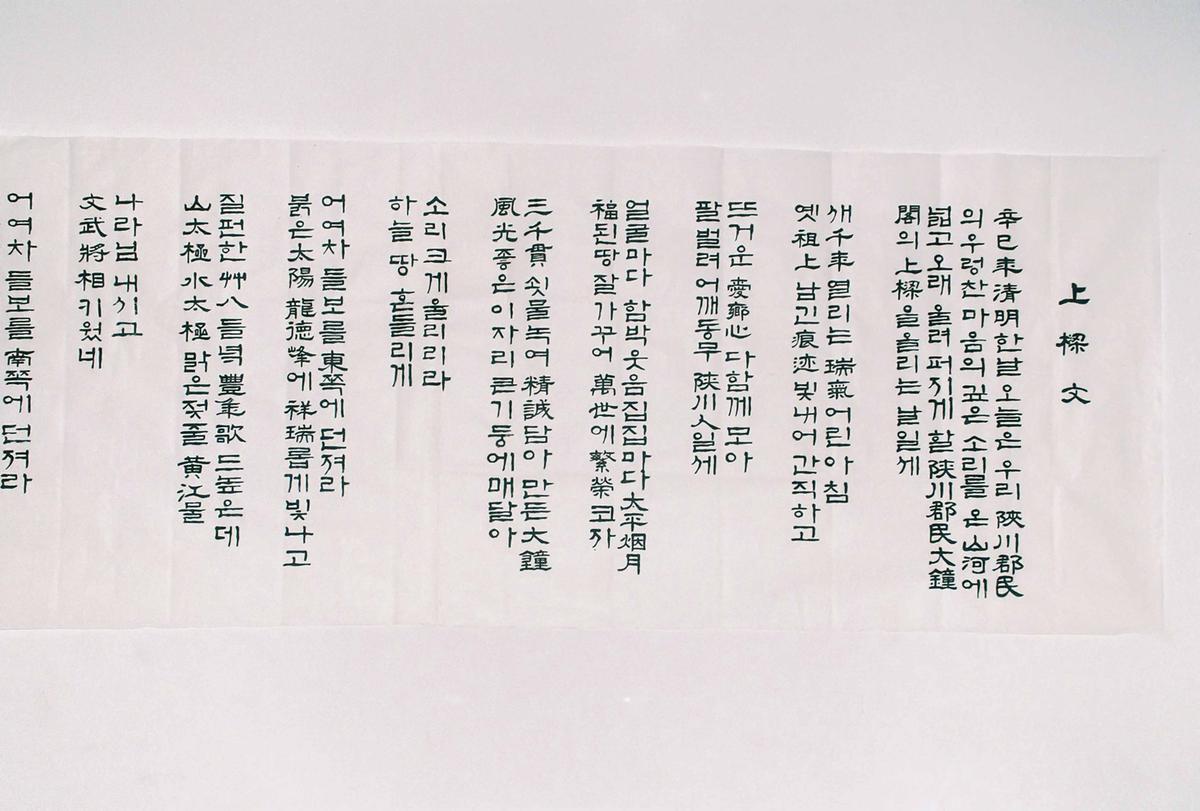 上樑文
辛巳年清明한날오늘은우리陜川郡民
의우렁찬마음의깊은소리를온山河에
넓고오래울려퍼지게할陜川郡民大鐘
閣의上樑을올리는날일세
새千年열리는瑞氣어린아침
옛祖上남긴痕迹빛내어간직하고
뜨거운愛鄕心다함께모아
팔벌려어깨동무陜川人일세
얼굴마다함박웃음집집마다太平烟月
福된땅잘가꾸어萬世에繁榮코자
三千貫쇳물녹여精誠담아만든大鐘
風光좋은이자리큰기둥에매달아
소리크게울리리라
하늘땅흔들리게
어여차들보를東쪽에던져라
붉은太陽龍德峰에祥瑞롭게빛나고
질펀한艸八들녘豐年歌드높은데
山太極水太極맑은젖줄黃江물
나라님내시고
文武將相키웠네
어여차들보를南쪽에던져라